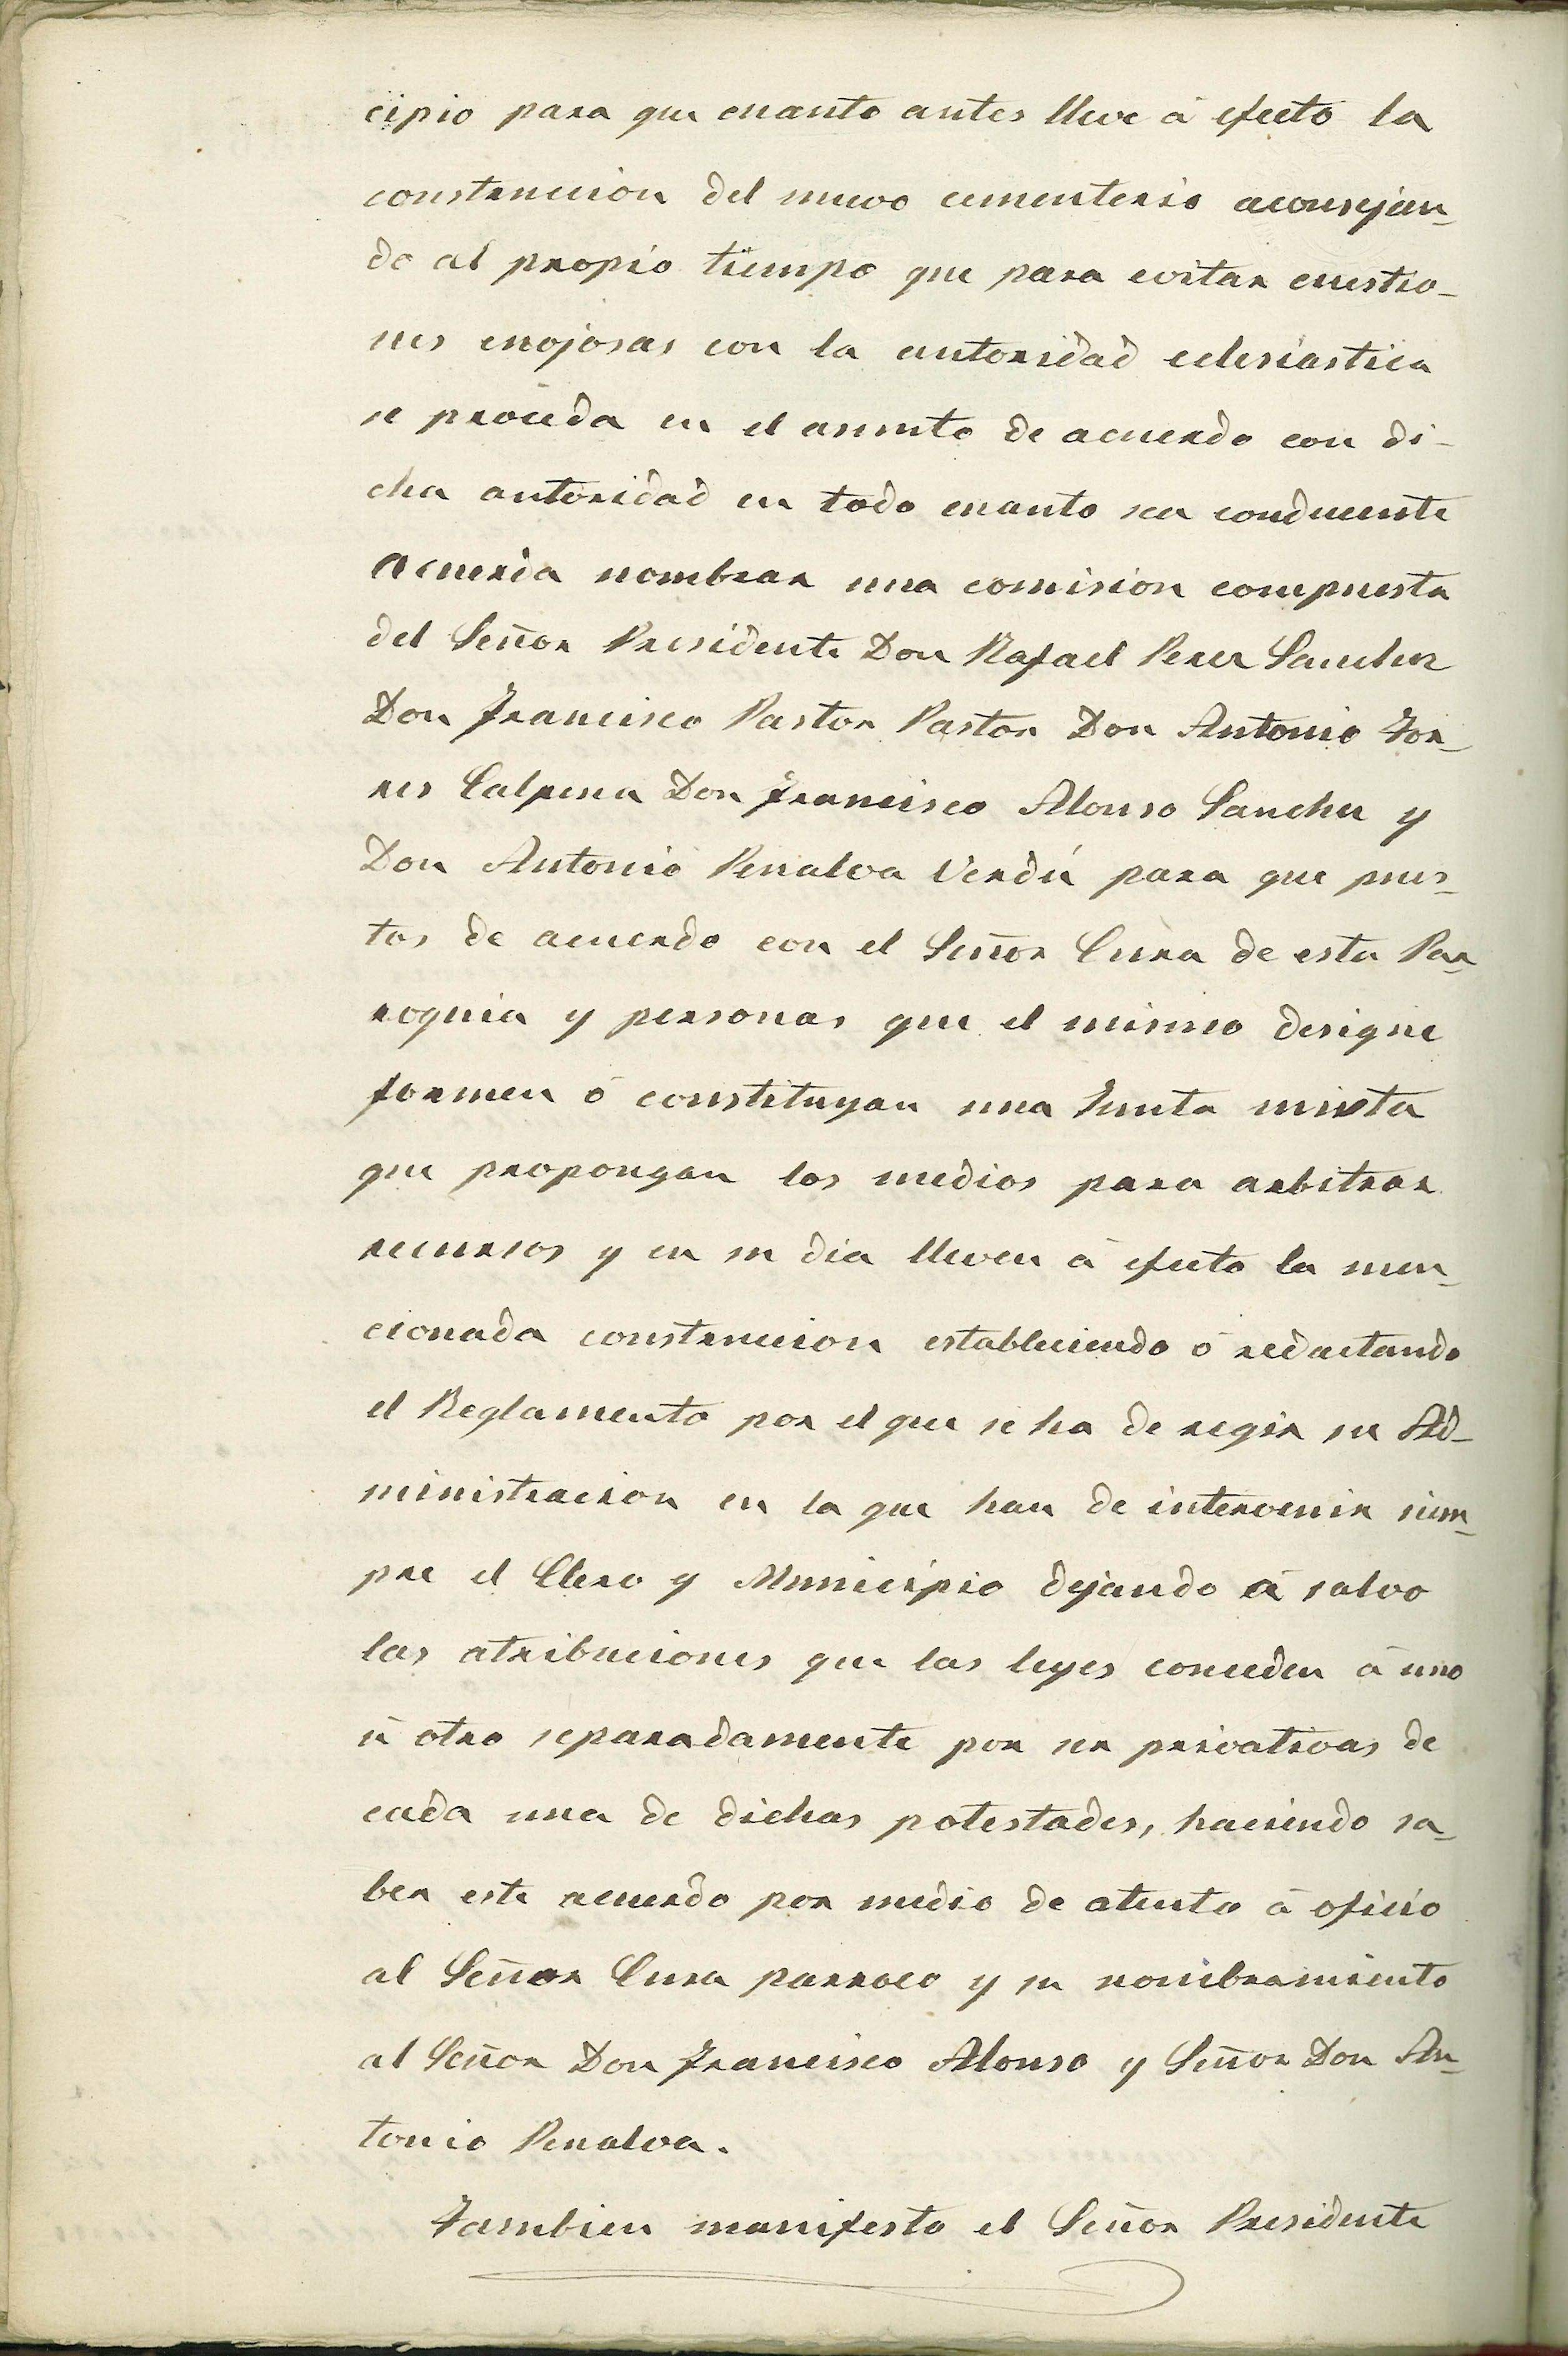 cipio para que cuanto antes lleve á efecto la
construccion del nuevo cementerio aconsejan-
do al propio tiempo que para evitar cuestio-
nes enojosas con la autoridad eclesiastica
se proceda en el asunto de acuerdo con di-
cha autoridad en todo cuanto sea conducente
acuerda nombrar una comision compuesta
del Señor Presidente Don Rafael Perez Sanchez
Don Francisco Pastor Pastor Don Antonio Tor-
res Calpena Don Francisco Alonso Sanchez y
Don Antonio Penalva Verdú para que pues-
tos de acuerdo con el Señor Cura de esta Par-
roquia y personas que el mismo designe
formen ó constituyan una Junta mixta
que propongan los medios para arbitrar
recursos y en su dia lleven á efecto la men-
cionada construccion estableciendo ó redactando
el Reglamento por el que se ha de regir su Ad-
ministracion en la que han de intervenir siem-
pre el Clero y Municipio dejando á salvo
las atribuciones que las leyes conceden á uno
ú otro separadamente por ser privativas de
cada una de dichas potestades, haciendo sa-
ber este acuerdo por medio de atento á oficio
al Señor Cura parroco y su nombramiento
al Señor Don Francisco Alonso y Señor Don An-
tonio Penalva.
Tambien manifesto el Señor Presidente